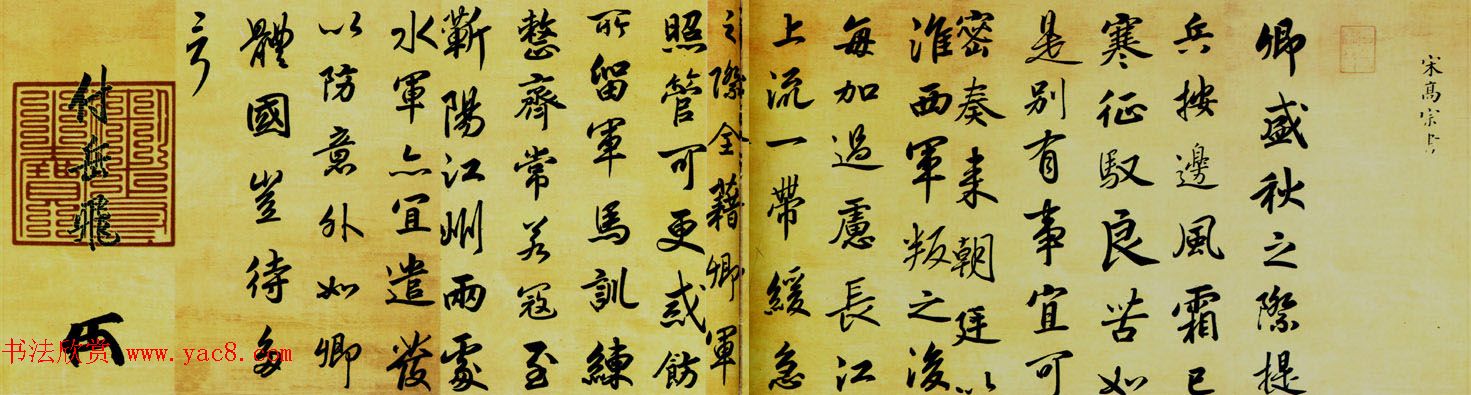 宋高宗書
卿盛秋之際提
兵按邊風霜已
寒征馭良苦如
是别有事宜可
密奏来朝廷以
淮西軍叛之後
每加過慮長江
上流一帶緩急
之際全藉卿軍
照管可更戒飭
所留軍馬訓練
整齊常若寇至
蘄陽江州兩處
水軍亦宜遣發
以防意外如卿
體國豈待多
言
付岳飛
书法欣赏 www.yac8.com